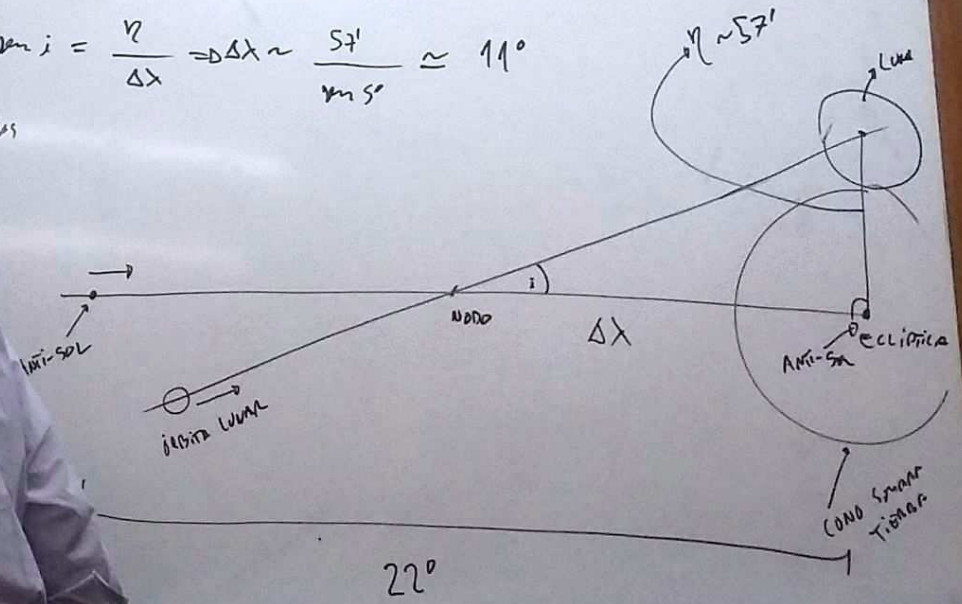 sen i = η / Δλ ⇒ Δλ ~ 57' / sen 5° ≃ 11°
η ~ 57'
LUNA
i
NODO
Δλ
ANTI-SOL
ECLÍPTICA
ANTI-SOL
ÓRBITA LUNAR
CONO SOMBRA
TIERRA
22°